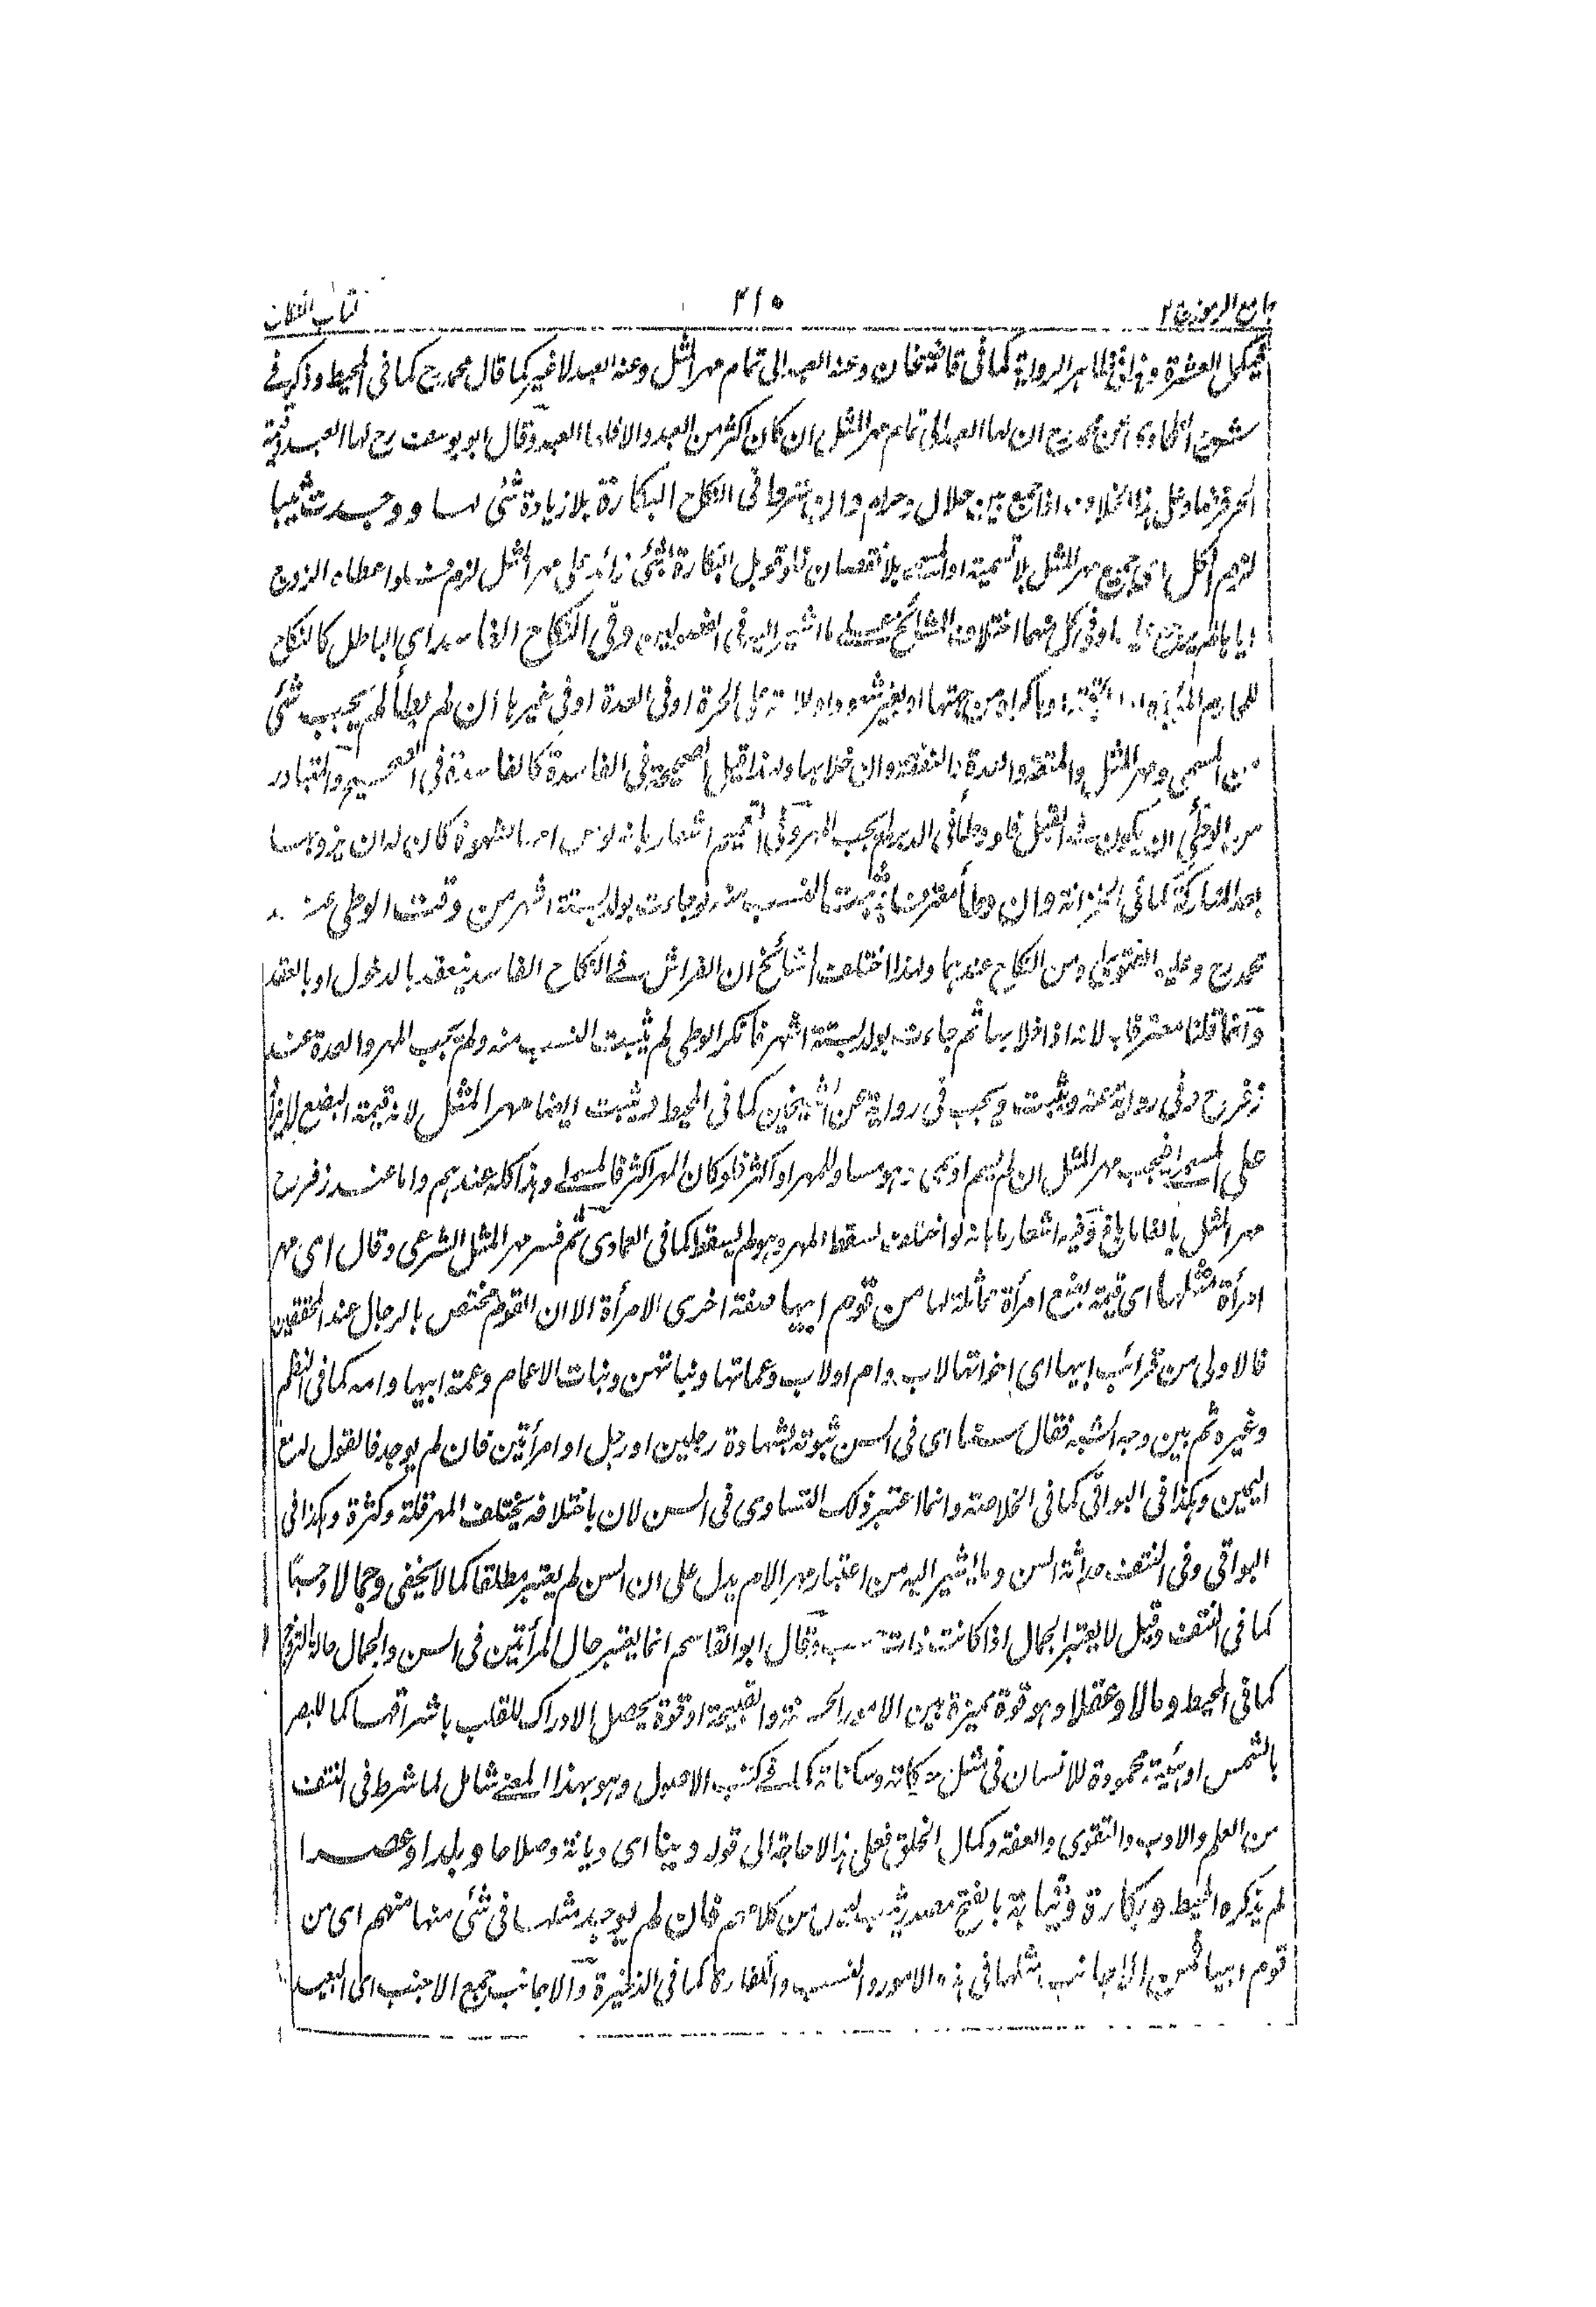 جامع الرموز ج ٢
٢١٠
كتاب النكاح
فيكمل العشرة وهذا في ظاهر الرواية كما في قاضيخان وعنه العبد الى تمام مهر المثل وعنه العبد لا غير كما قال محمد رح كما في المحيط وذكر في
شرح الطحاوي عن محمد رح ان لها العبد الى تمام مهر المثل ان كان اكثر من العبد والا فلها العبد وقال ابو يوسف رح لها العبد وقيمة
الحر وعلى هذا الخلاف اذا جمع بين حلال وحرام وان شرط في النكاح البكارة بلا زيادة شئ لها ووجدت ثيبا
لزم الكل اى جميع مهر المثل بلا تسمية او المسمى بلا نقصان فلو قوبل البكارة بشئ زائد على مهر المثل لزم
وفي كل منهما اختلاف المشائخ اشير اليه في وفي النكاح الفاسد اى الباطل كالنكاح
للمحارم او باكراه من جهتها او بغير شهود او الامة على الحرة او في العدة او في غيرها ان لم يطأ لم يجب شئ
من المسمى ومهر المثل والمتعة والعدة والنفقة وان خلا بها ولهذا قيل الصحيحة في الفاسدة كالفاسدة في الصحيح والمتبادر
من الوطئ ان يكون في القبل فلو وطأ في الدبر لم يجب المهر وفي اشعار بانه لو بالشهوة كان له ان يزوجها
بعد المتاركة كما في الخزانة وان وطأ معترفا يثبت النسب منه لو جاءت بولد لستة اشهر من وقت الوطى عند
محمد رح وعليه الفتوى ومن النكاح عندهما ولهذا اختلف المشائخ ان الفراش في النكاح الفاسد ينعقد بالدخول او بالعقد
وانما قلنا معترفا به لانه اذا خلا بها ثم جاءت بولد لستة اشهر فانكر الوطى لم يثبت النسب منه ولم يجب المهر والعدة عند
زفر رح وفي رواية عنه ويثبت ويجب في رواية عن الشيخين كما في المحيط ويثبت ايضا مهر المثل لانه قيمة البضع لا يزاد
على المسمى فيجب مهر المثل ان لم يسم او سمى ما هو مساو للمهر او اكثر فلو كان المهر اكثر فالمسمى وهذا كله عندهم واما عند زفر رح
مهر المثل بالغا ما بلغ وفيه اشعار ما بانه لو اختلفت لسقط المهر وهو لم يسقط كما في العمادي ثم فسر مهر المثل الشرعي وقال اى مهر
امرأة مثلها اى قيمة بضع امرأة مماثلة لها من قوم ابيها صفة اخرى الامرأة الا ان القوم مختص بالرجال عند المحققين
فالاولى من قرائب ابيها اى اخواتها لاب وام او لاب وعماتها وبناتهن وبنات الاعمام وعمة ابيها وامه كما في النظم
وغيره ثم بين وجه الشبه فقال سنا اى في السن ثبوته بشهادة رجلين او رجل او امرأتين فان لم يوجد فالقول له مع
اليمين وهكذا في البواقي كما في الخلاصة وانما اعتبر ذلك التساوى في السن لان باختلافه يختلف المهر قلة وكثرة وهكذا في
البواقي وفي النتف حداثة السن وما اشير اليه من اعتبار مهر الام يدل على ان السن لم يعتبر مطلقا كما لا يخفى وجمالا وحسنا
كما في النتف وقيل لا يعتبر الجمال اذا كانت ذات حسب وقال ابو القاسم انما يعتبر حال المرأتين في السن والجمال حالة التزوج
كما في المحيط ومالا وعقلا وهو قوة مميزة بين الامور الحسنة والقبيحة او قوة يحصل الادراك للقلب باشراقها كما للبصر
بالشمس او هيئة محمودة للانسان في مثل حركاته وسكناته كما في كتب الاصول وهو بهذا المعنى شامل لما شرط في النتف
من العلم والادب والتقوى والعفة وكمال الخلق فعلى هذا لا حاجة الى قوله ودينا اى ديانة وصلاحا وبلدا وعصرا
لم يذكره المحيط وبكارة وثيابة بالفتح مصدر ثيب ليس من كلامهم فان لم يوجد مثلها في شئ منها منهم اى من
قوم ابيها فمن الاجانب مثلها في هذه الامور والنسب والكفاءة كما في الذخيرة والاجانب جمع الاجنب اى البعيد